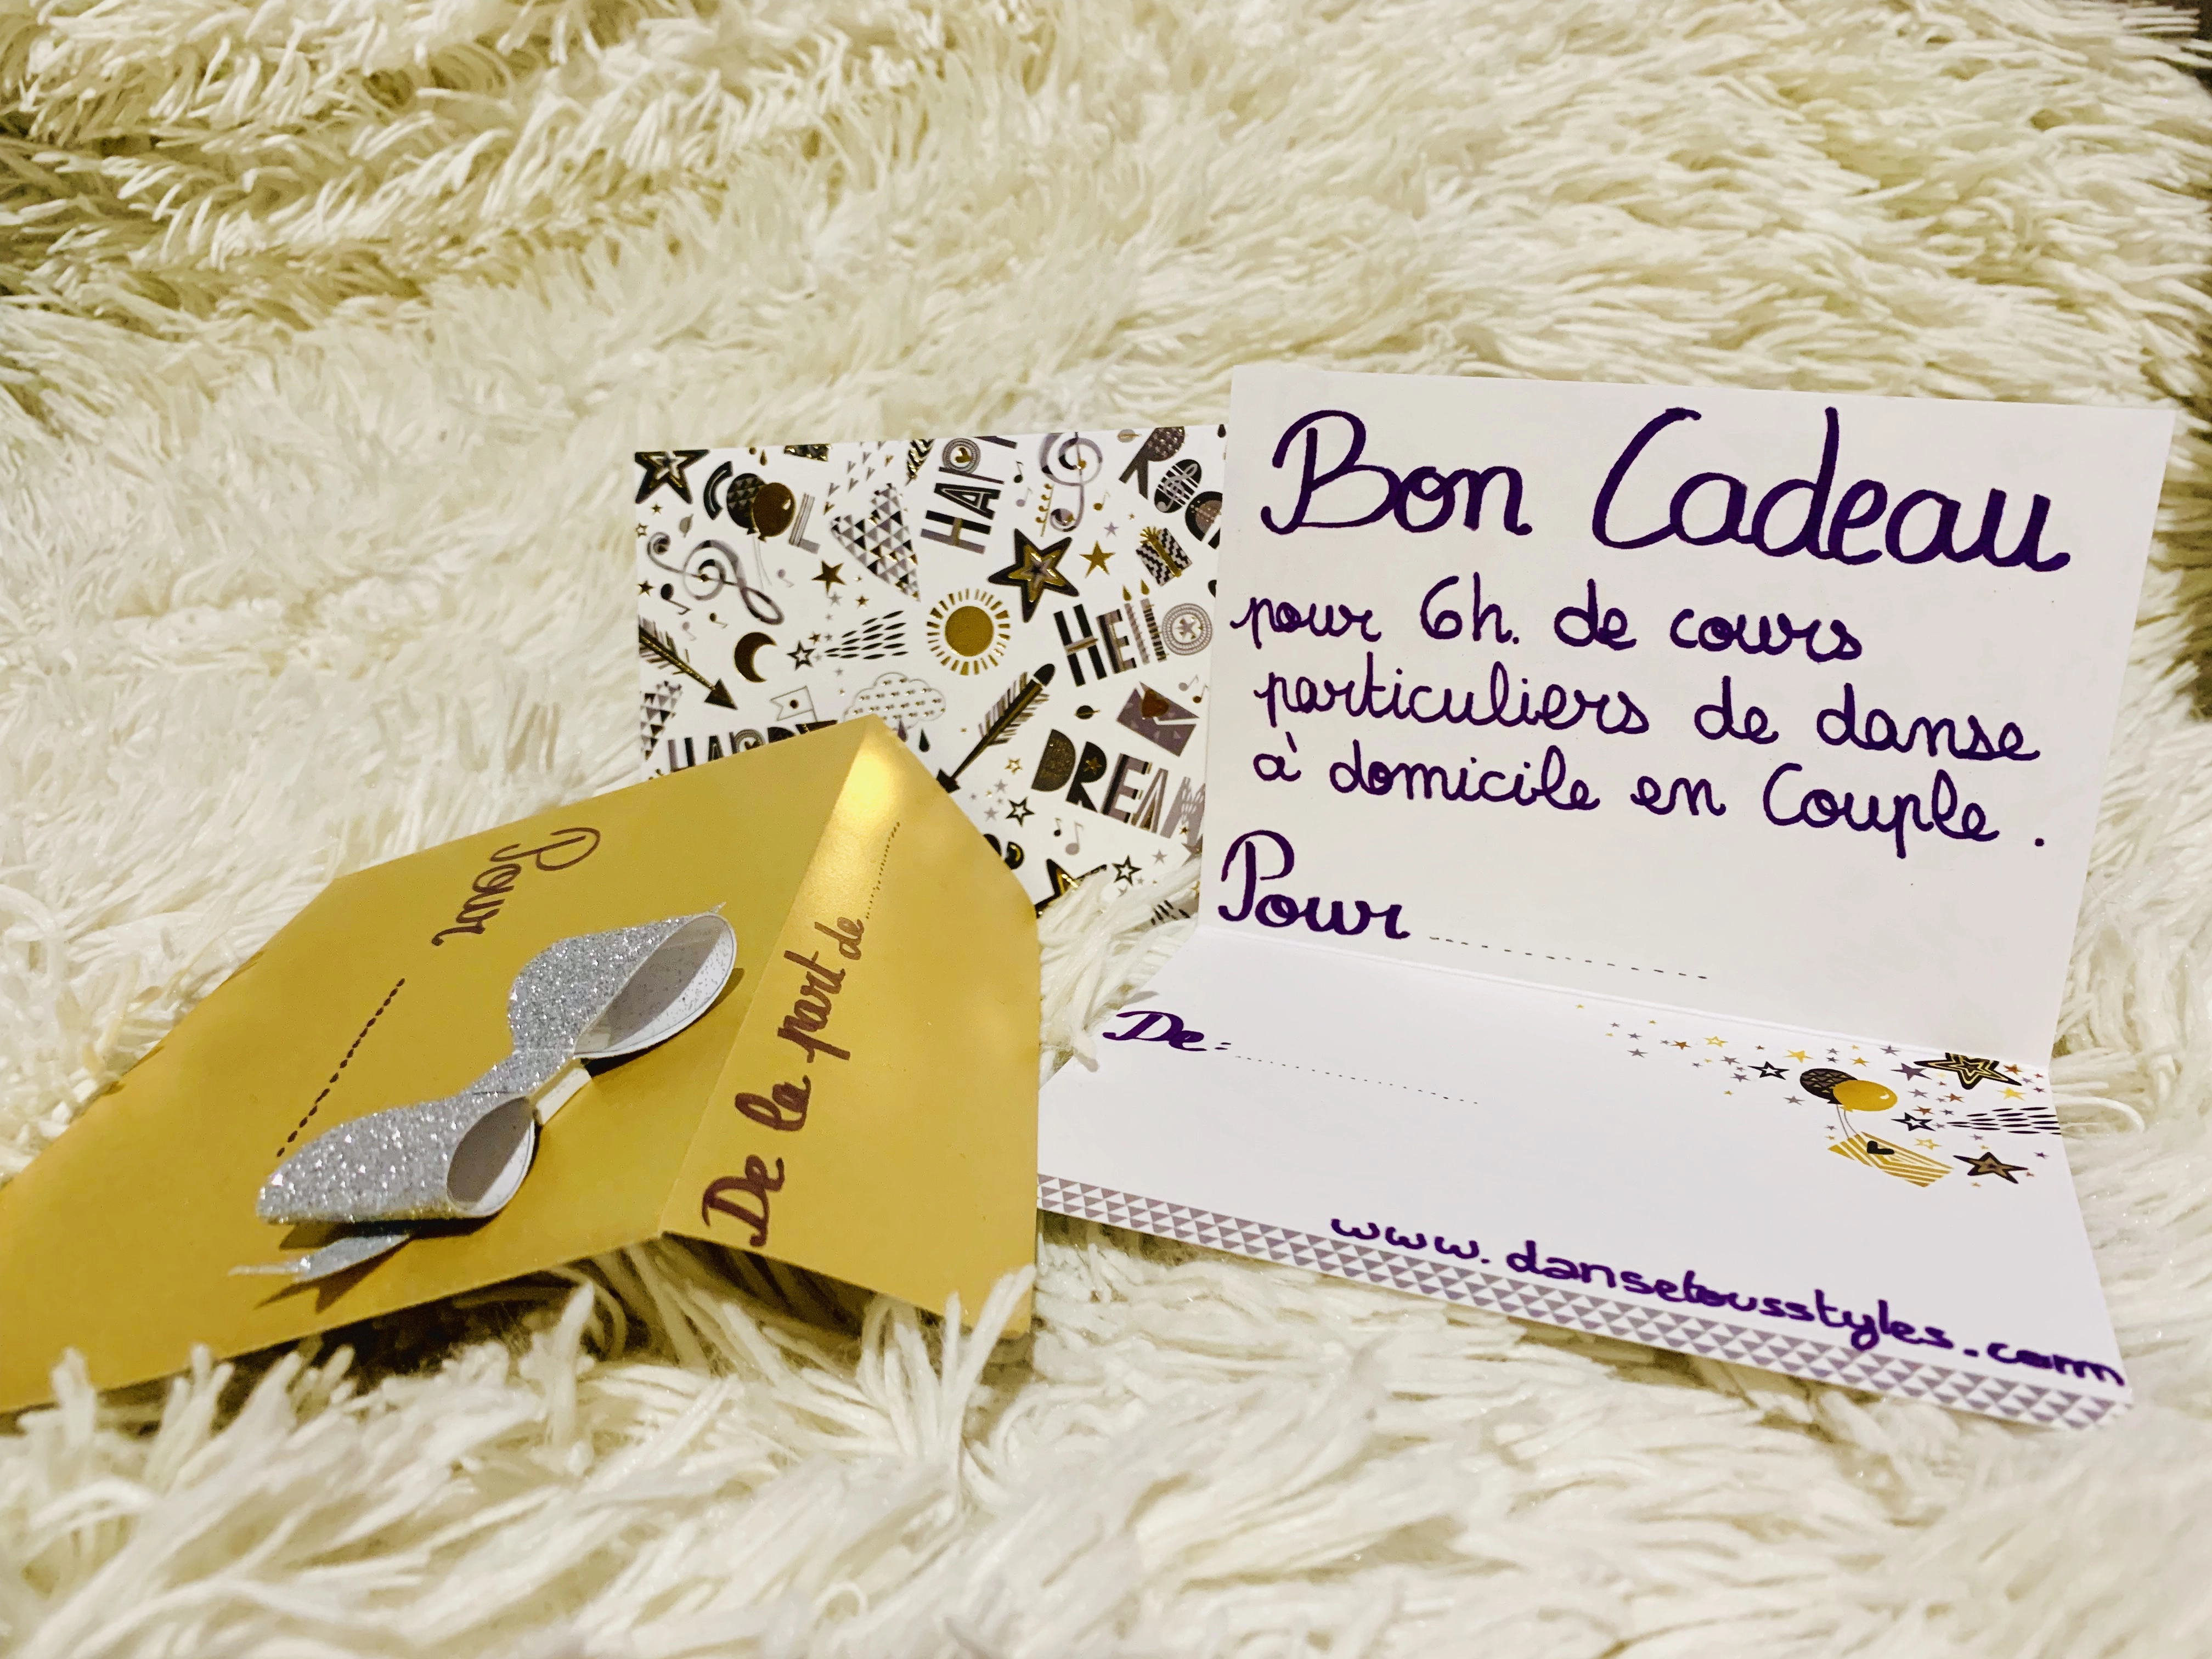 Bon Cadeau
pour 6h. de cours
particuliers de danse
à domicile en Couple.
Pour ...............
De: ...............
www.dansetousstyles.com
Pour ...............
De la part de ...............
HAPPY
HELLO
DREAM
HAPPY